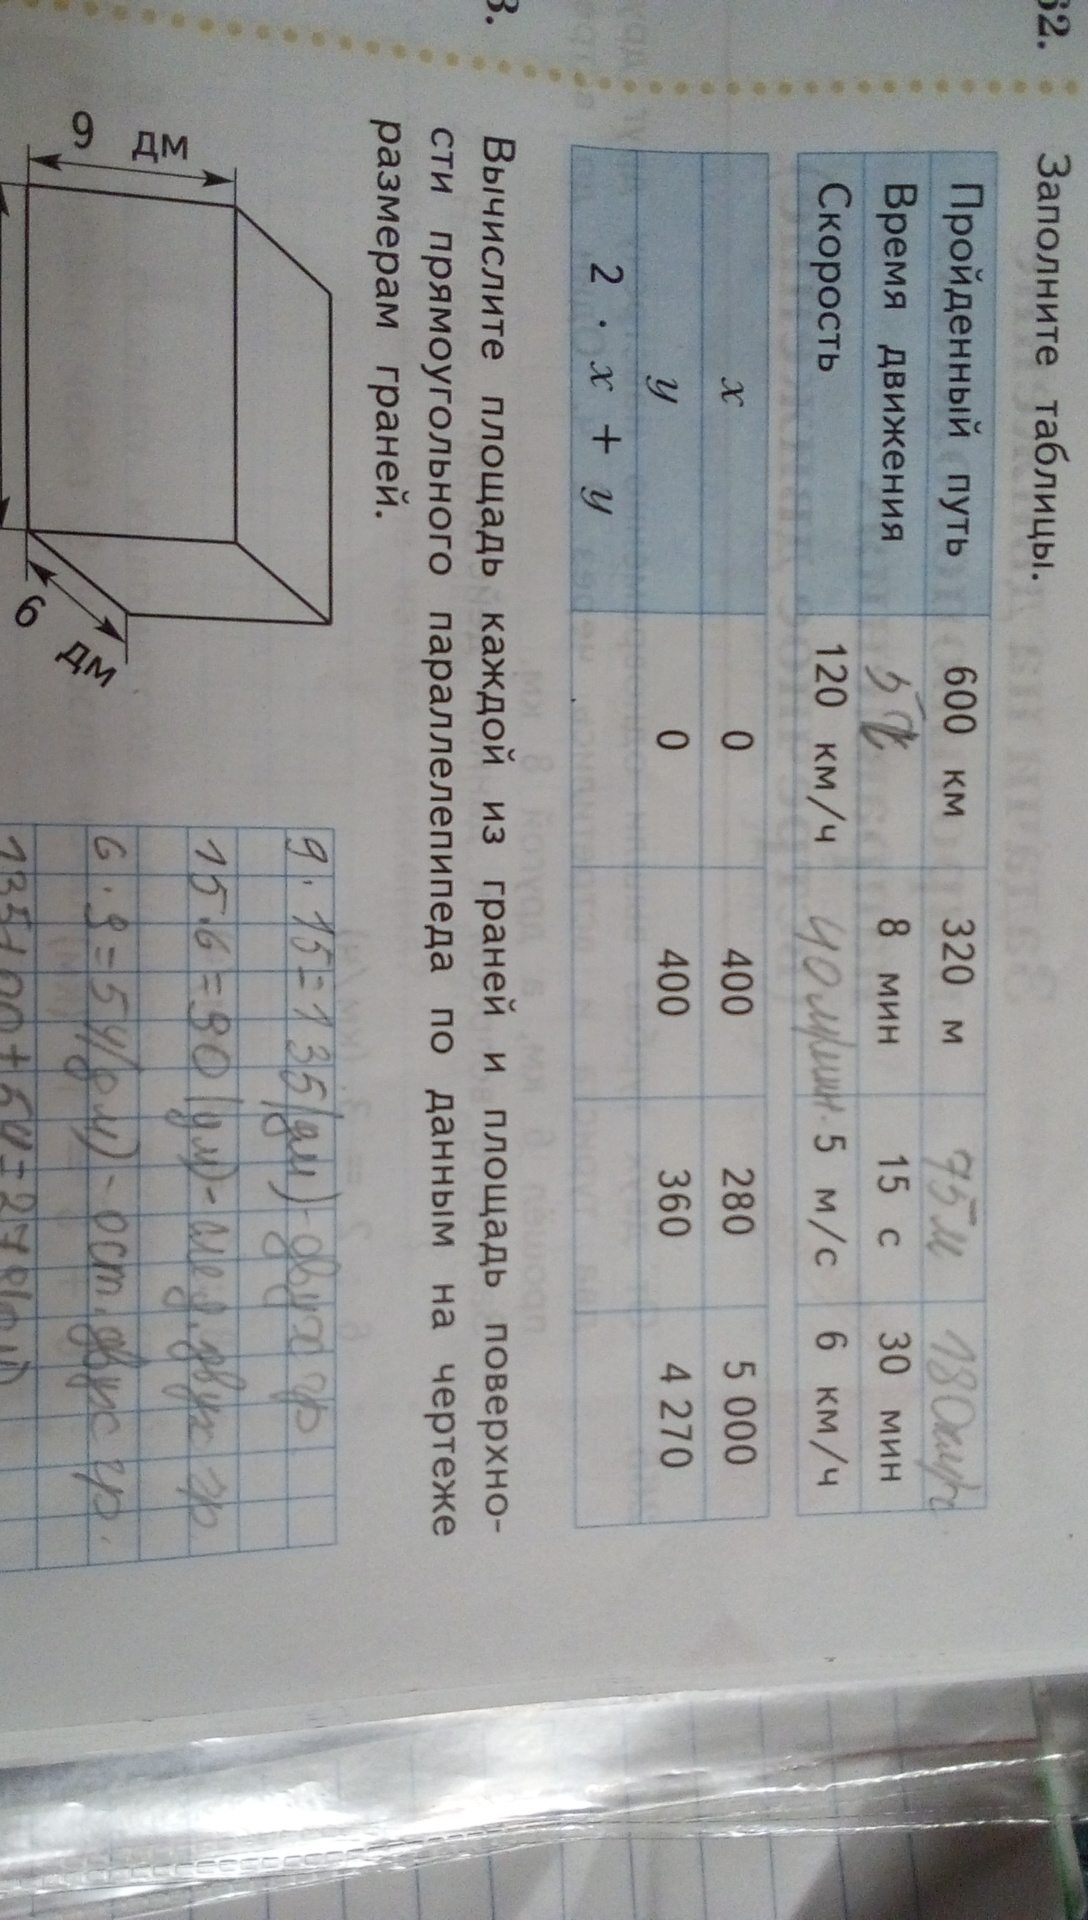 62.
Заполните таблицы.
Пройденный путь 600 км 320 м 75 м
Время движения 5 ч 8 мин 15 с 30 мин
Скорость 120 км/ч 40 м/мин. 5 м/с 6 км/ч
x 0 400 280 5 000
y 0 400 360 4 270
2 · x + y
3.
Вычислите площадь каждой из граней и площадь поверхно-
сти прямоугольного параллелепипеда по данным на чертеже
размерам граней.
9 дм
6 дм
9 · 15 = 135 (дм) - двух гр
15 · 6 = 90 (дм) - двух гр
6 · 9 = 54 (дм) - ост. двух гр.
135 + 90 + 54 = 279 (дм)